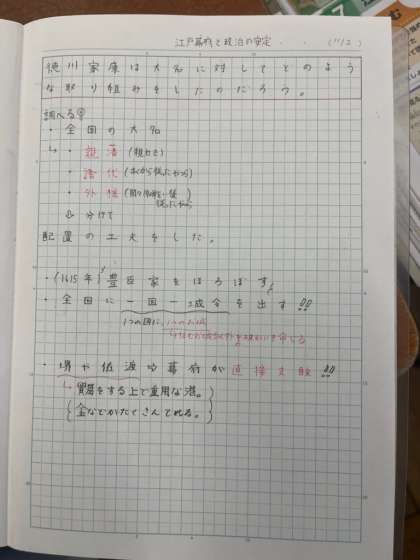 江戸幕府と政治の安定 (11/2)
徳川家康は大名に対してどのよう
な取り組みをしたのだろう。
調べる
・全国の大名
↳・親藩(親せき)
・譜代(古くから従ったから)
・外様(関ヶ原の戦い後 従ったから)
⇩ 分けて
配置の工夫をした。
・(1615年)豊臣家をほろぼす
・全国に一国一城令を出す!!
1つの国に、1つのお城
・堺や佐渡は幕府が直接支配!!
↳貿易をする上で重用な港。
金などがたくさんとれる。